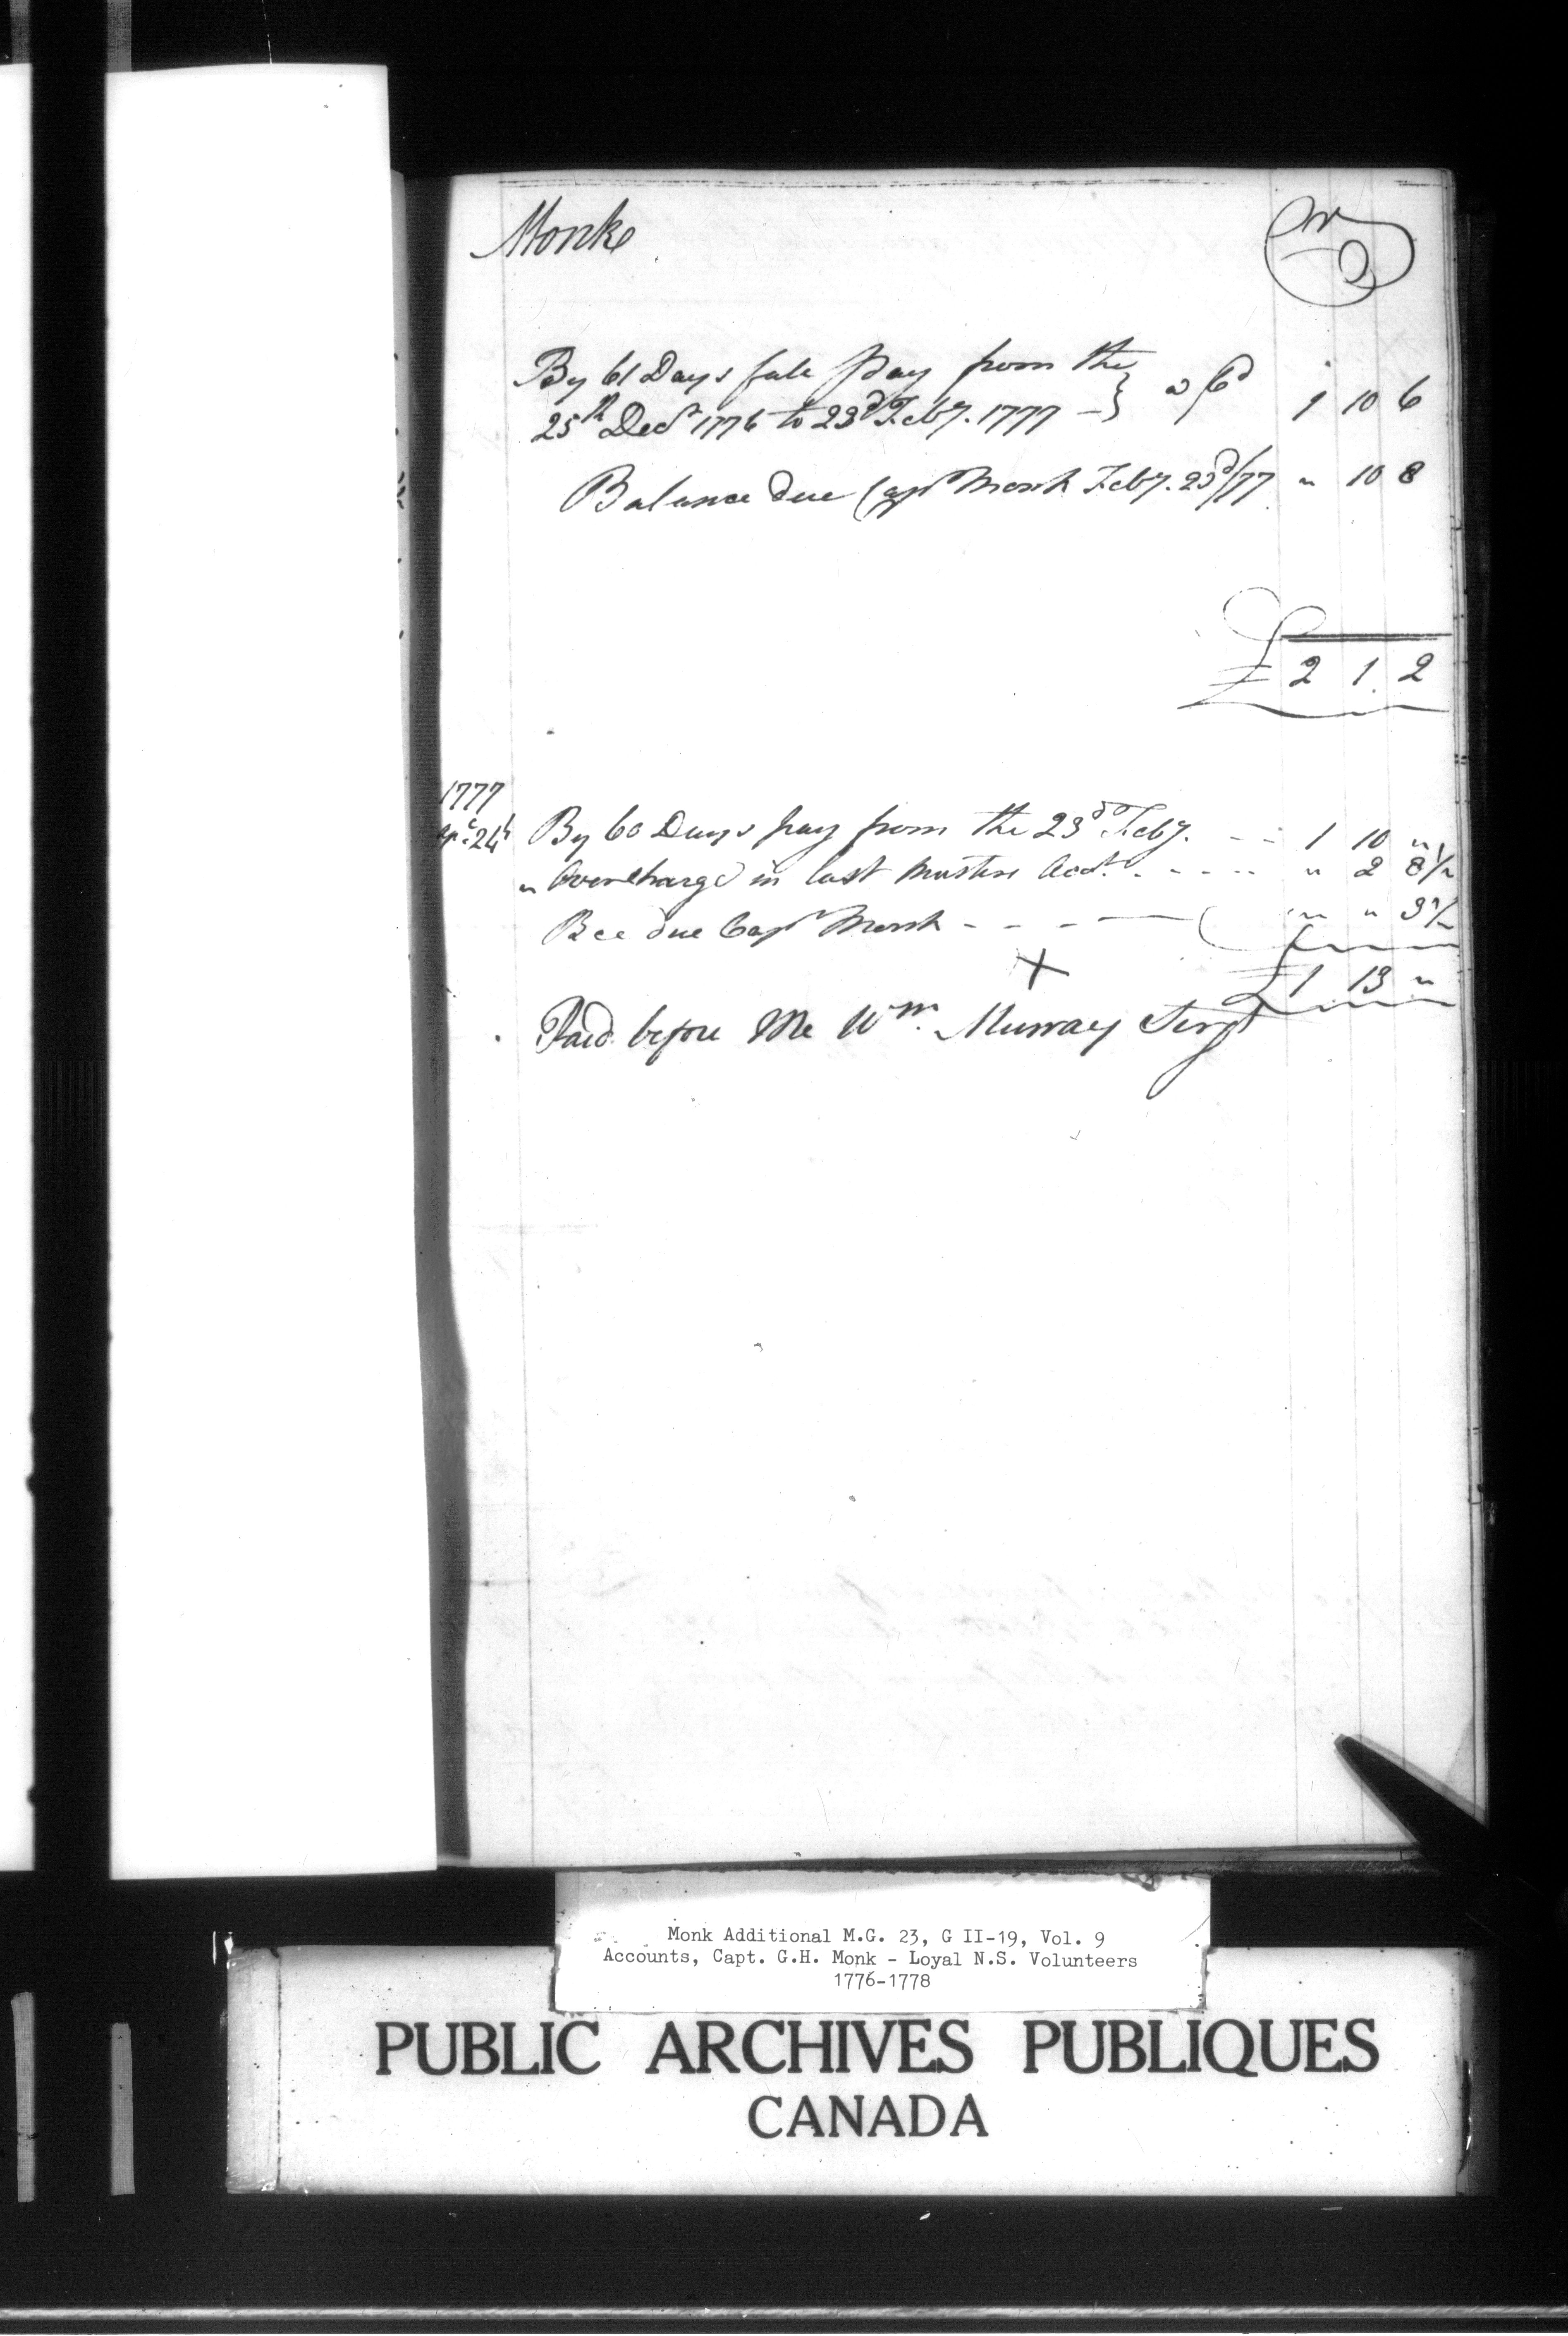 Monk
Cr
By 61 Days full Pay from the } a 6d 1 10 6
25th Decr 1776 to 23d Feby. 1777 –
Balance due Capt Monk Feby. 23d/77 " 10 8
£ 2 1 2
1777
Apl 24h By 60 Days pay from the 23d Feby. - - - 1 10 "
" Overcharged in last Musters Acct. - - - - - " 2 8 1/2
Bce due Capt Monk - - - — " " 3 1/2
£ 1 13 "
X
Paid before Me Wm. Murray Sergt
Monk Additional M.G. 23, G II-19, Vol. 9
Accounts, Capt. G.H. Monk - Loyal N.S. Volunteers
1776-1778
PUBLIC ARCHIVES PUBLIQUES
CANADA